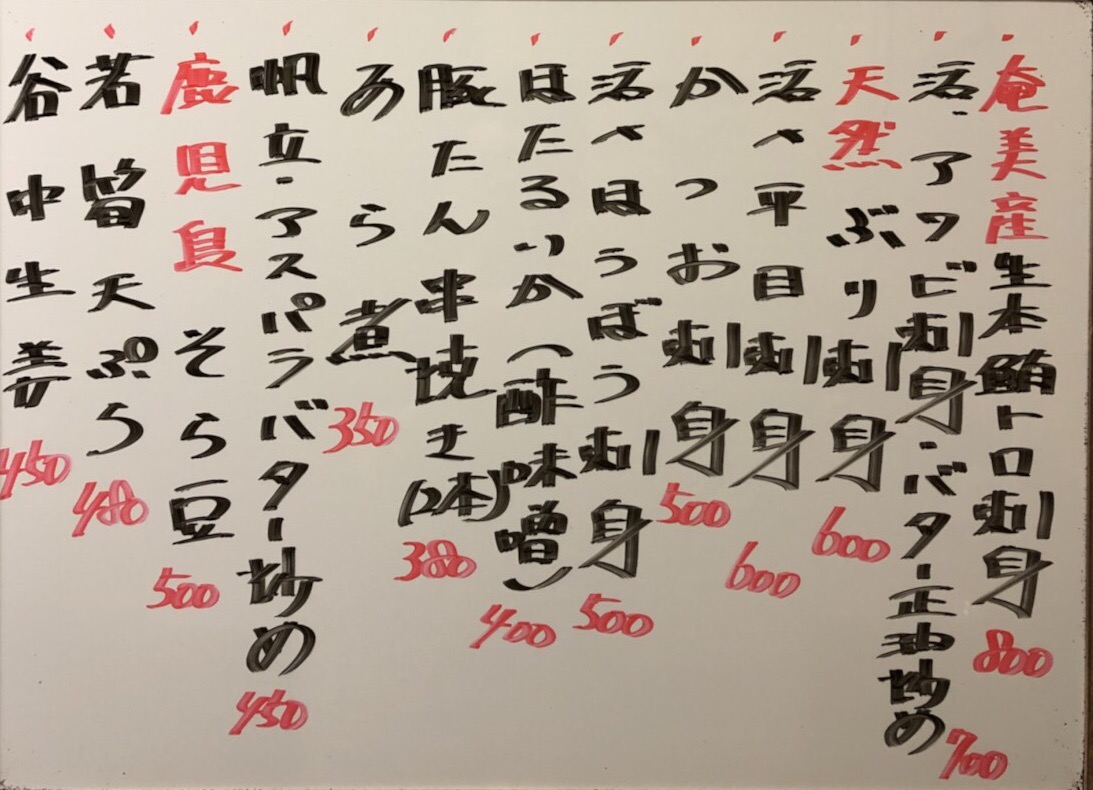 奄美産生本鮪トロ刺身 800
活・アワビ刺身・バター正油炒め 700
天然ぶり刺身 600
活〆平目刺身 600
かつお刺身 500
活〆ほうぼう刺身 500
ほたるいか(酢味噌) 400
豚たん串焼き(2本) 380
あら煮 350
帆立・アスパラバター炒め 450
鹿児島そら豆 500
若留天ぷら 480
谷中生姜 450